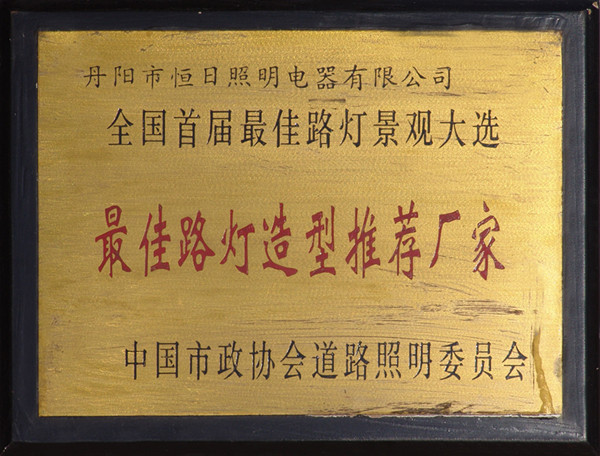 丹阳市恒日照明电器有限公司
全国首届最佳路灯景观大选
最佳路灯造型推荐厂家
中国市政协会道路照明委员会